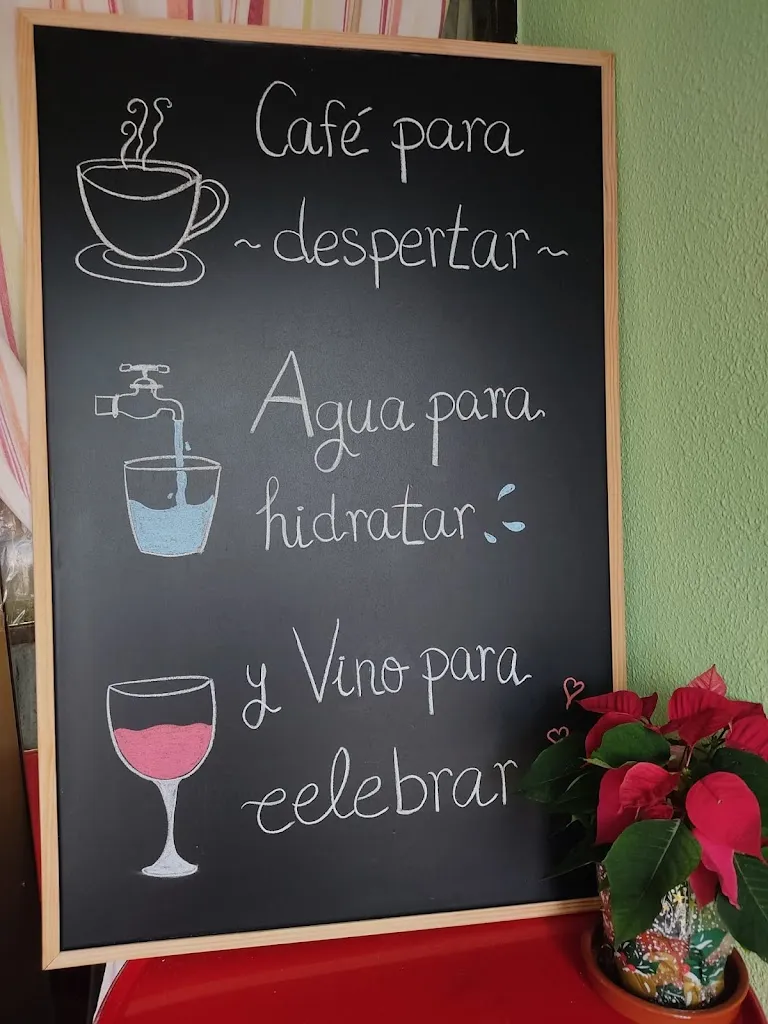 Café para
~despertar~
Agua para
hidratar
y Vino para
celebrar